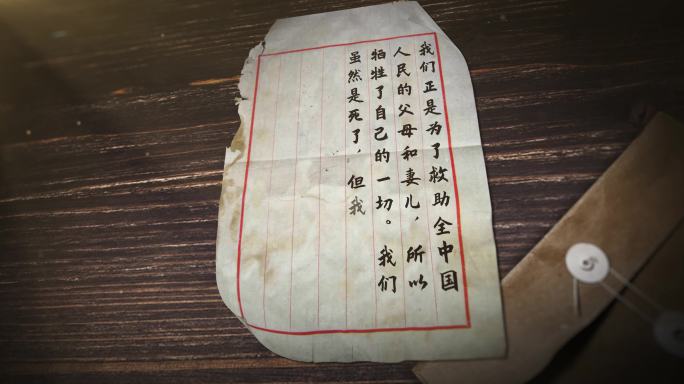 我们正是为了救助全中国
人民的父母和妻儿，所以
牺牲了自己的一切。我们
虽然是死了，但我